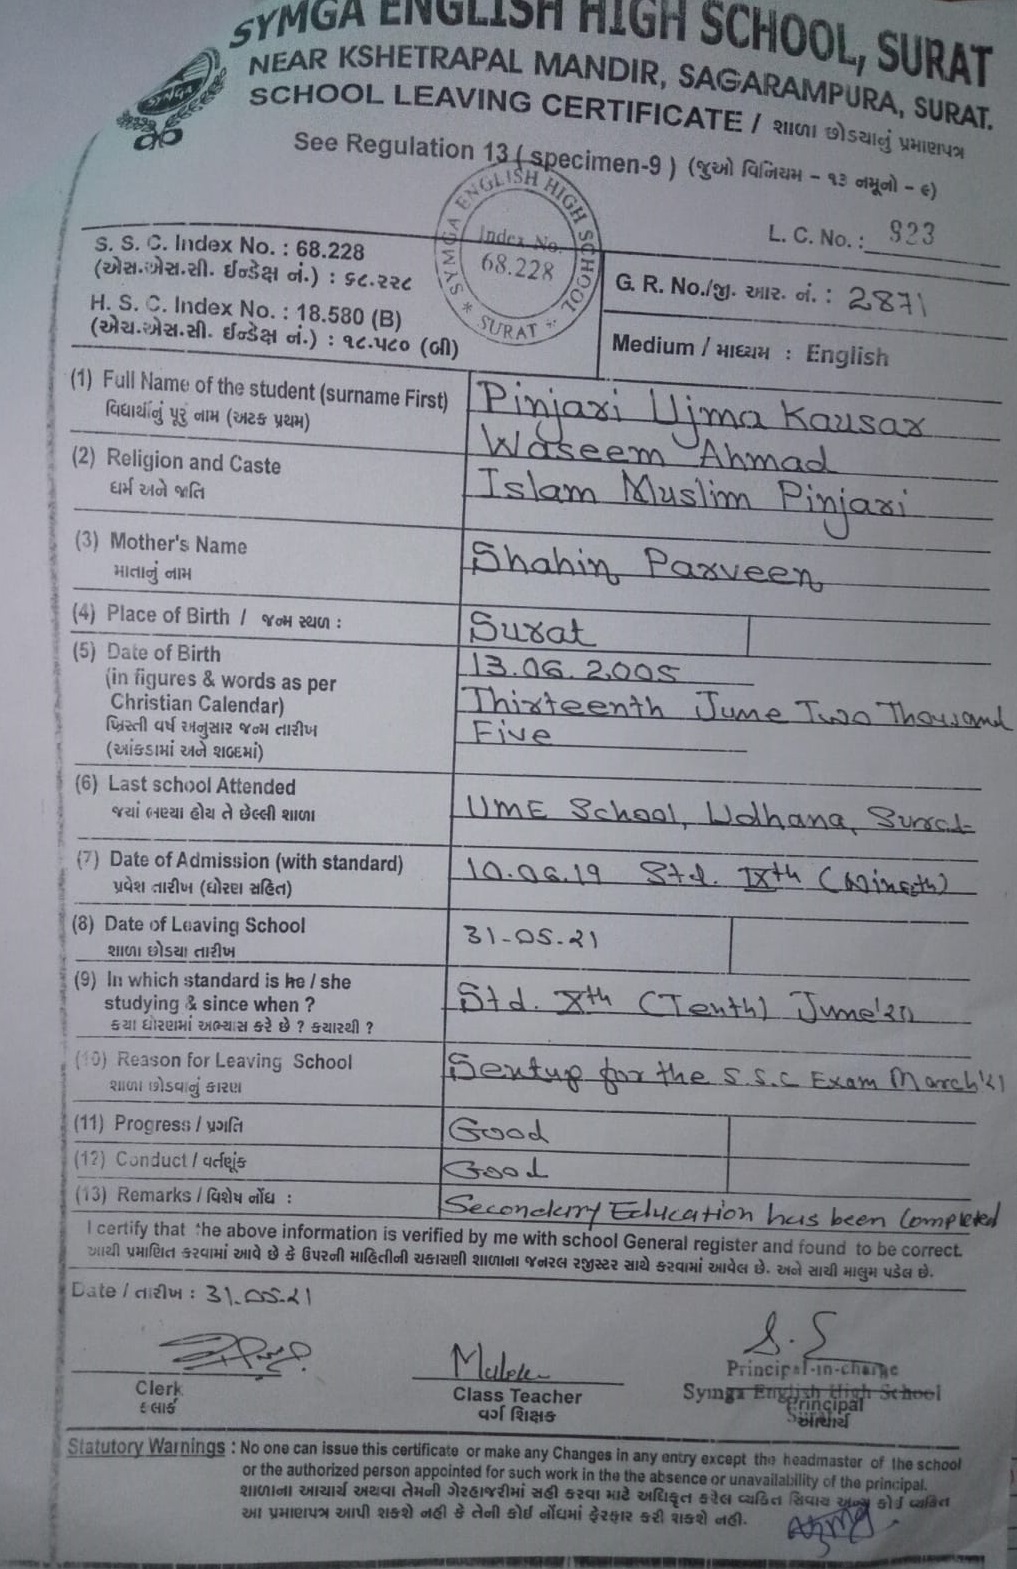 SYMGA ENGLISH HIGH SCHOOL, SURAT
NEAR KSHETRAPAL MANDIR, SAGARAMPURA, SURAT.
SCHOOL LEAVING CERTIFICATE / શાળા છોડયાનું પ્રમાણપત્ર
See Regulation 13 ( specimen-9 ) (જુઓ વિનિયમ - ૧૩ નમૂનો - ૯)
SYMGA
SYMGA ENGLISH HIGH SCHOOL
* SURAT *
Index No.
68.228
L. C. No. : 823
S. S. C. Index No. : 68.228
(એસ.એસ.સી. ઈન્ડેક્ષ નં.) : ૬૮.૨૨૮
H. S. C. Index No. : 18.580 (B)
(એચ.એસ.સી. ઈન્ડેક્ષ નં.) : ૧૮.૫૮૦ (બી)
G. R. No./જી. આર. નં. : 2871
Medium / માધ્યમ : English
(1) Full Name of the student (surname First)
વિદ્યાર્થીનું પૂરું નામ (અટક પ્રથમ)
Pinjari Ujma Kausar
Waseem Ahmad
(2) Religion and Caste
ધર્મ અને જાતિ
Islam Muslim Pinjari
(3) Mother's Name
માતાનું નામ
Shahin Parveen
(4) Place of Birth / જન્મ સ્થળ :
Surat
(5) Date of Birth
(in figures & words as per
Christian Calendar)
ખ્રિસ્તી વર્ષ અનુસાર જન્મ તારીખ
(આંકડામાં અને શબ્દમાં)
13.06.2005
Thirteenth June Two Thousand
Five
(6) Last school Attended
જયાં ભણ્યા હોય તે છેલ્લી શાળા
UME School, Udhana, Surat
(7) Date of Admission (with standard)
પ્રવેશ તારીખ (ધોરણ સહિત)
10.06.19 Std. IXth (Nineth)
(8) Date of Leaving School
શાળા છોડયા તારીખ
31-05-21
(9) In which standard is he / she
studying & since when ?
કયા ધોરણમાં અભ્યાસ કરે છે ? કયારથી ?
Std. Xth (Tenth) June'20
(10) Reason for Leaving School
શાળા છોડવાનું કારણ
Sentup for the S.S.C Exam March'21
(11) Progress / પ્રગતિ
Good
(12) Conduct / વર્તણૂંક
Good
(13) Remarks / વિશેષ નોંધ :
Secondary Education has been Completed
I certify that the above information is verified by me with school General register and found to be correct.
આથી પ્રમાણિત કરવામાં આવે છે કે ઉપરની માહિતીની ચકાસણી શાળાના જનરલ રજીસ્ટર સાથે કરવામાં આવેલ છે. અને સાચી માલુમ પડેલ છે.
Date / તારીખ : 31.05.21
S. S
Clerk
કલાર્ક
Class Teacher
વર્ગ શિક્ષક
Principal-in-charge
Symga English High School
Principal
આચાર્ય
Statutory Warnings : No one can issue this certificate or make any Changes in any entry except the headmaster of the school
or the authorized person appointed for such work in the the absence or unavailability of the principal.
શાળાના આચાર્ય અથવા તેમની ગેરહાજરીમાં સહી કરવા માટે અધિકૃત કરેલ વ્યકિત સિવાય અન્ય કોઈ વ્યકિત
આ પ્રમાણપત્ર આપી શકશે નહી કે તેની કોઈ નોંધમાં ફેરફાર કરી શકશે નહી.